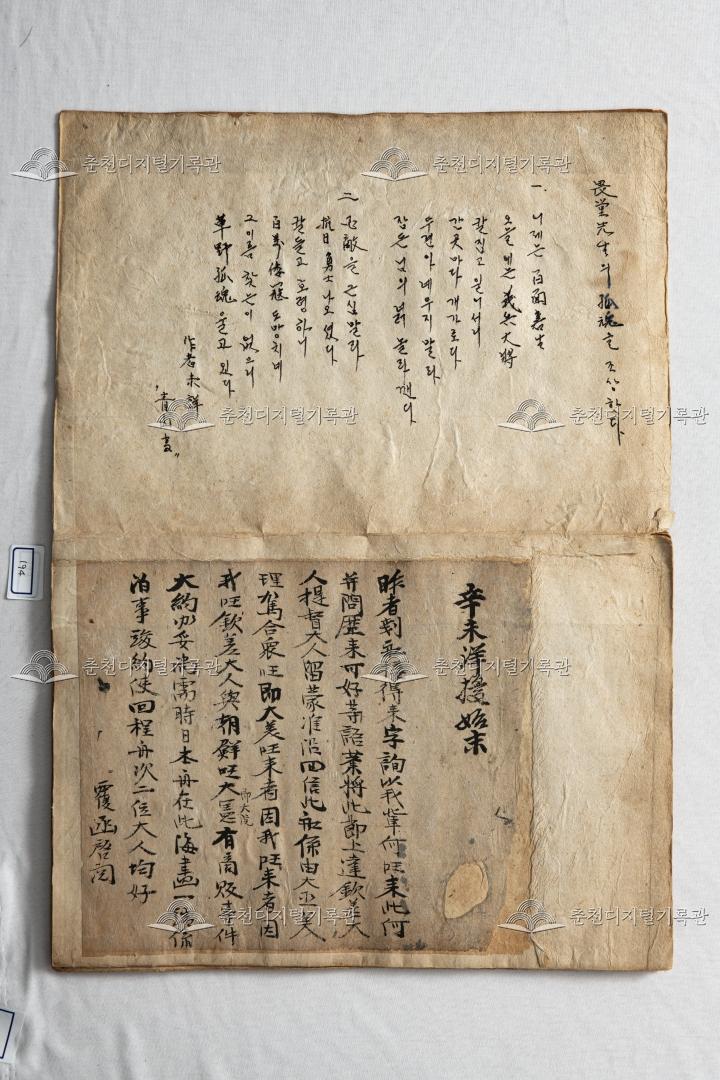 畏堂先生의 孤魂을 조상하다
一. 니제는 百面書生
오늘에는 義兵大將
칼 집고 일니서니
간 곳마다 개가로다
두견아 네 우지 말라
잠든 님의 넋 놀라 깬다
二 敵을 근심 말라
抗日 勇士 나오셨다
칼 들고 호령하니
百萬 倭寇 도망치네
그 이름 찾는 이 없으니
草野 孤魂 울고 있다
作者未詳
辛未洋擾始末
昨者到 得來字詢以我輩何旺來此何
并問歷來可好等語業將此節上達欽差大
人提督大人留蒙准泒回信此船係由大亞美
理駕合衆旺即大美旺來者因我旺來者因
我旺欽差大人與朝鮮旺大憲 有商販事件
即大院
大約 妥 需時日本舟在此海畫一
泊事竣約使回程舟次二位大人均好
覆函啓
194
춘천디지털기록관
춘천디지털기록관
춘천디지털기록관
춘천디지털기록관
춘천디지털기록관
춘천디지털기록관
춘천디지털기록관
춘천디지털기록관